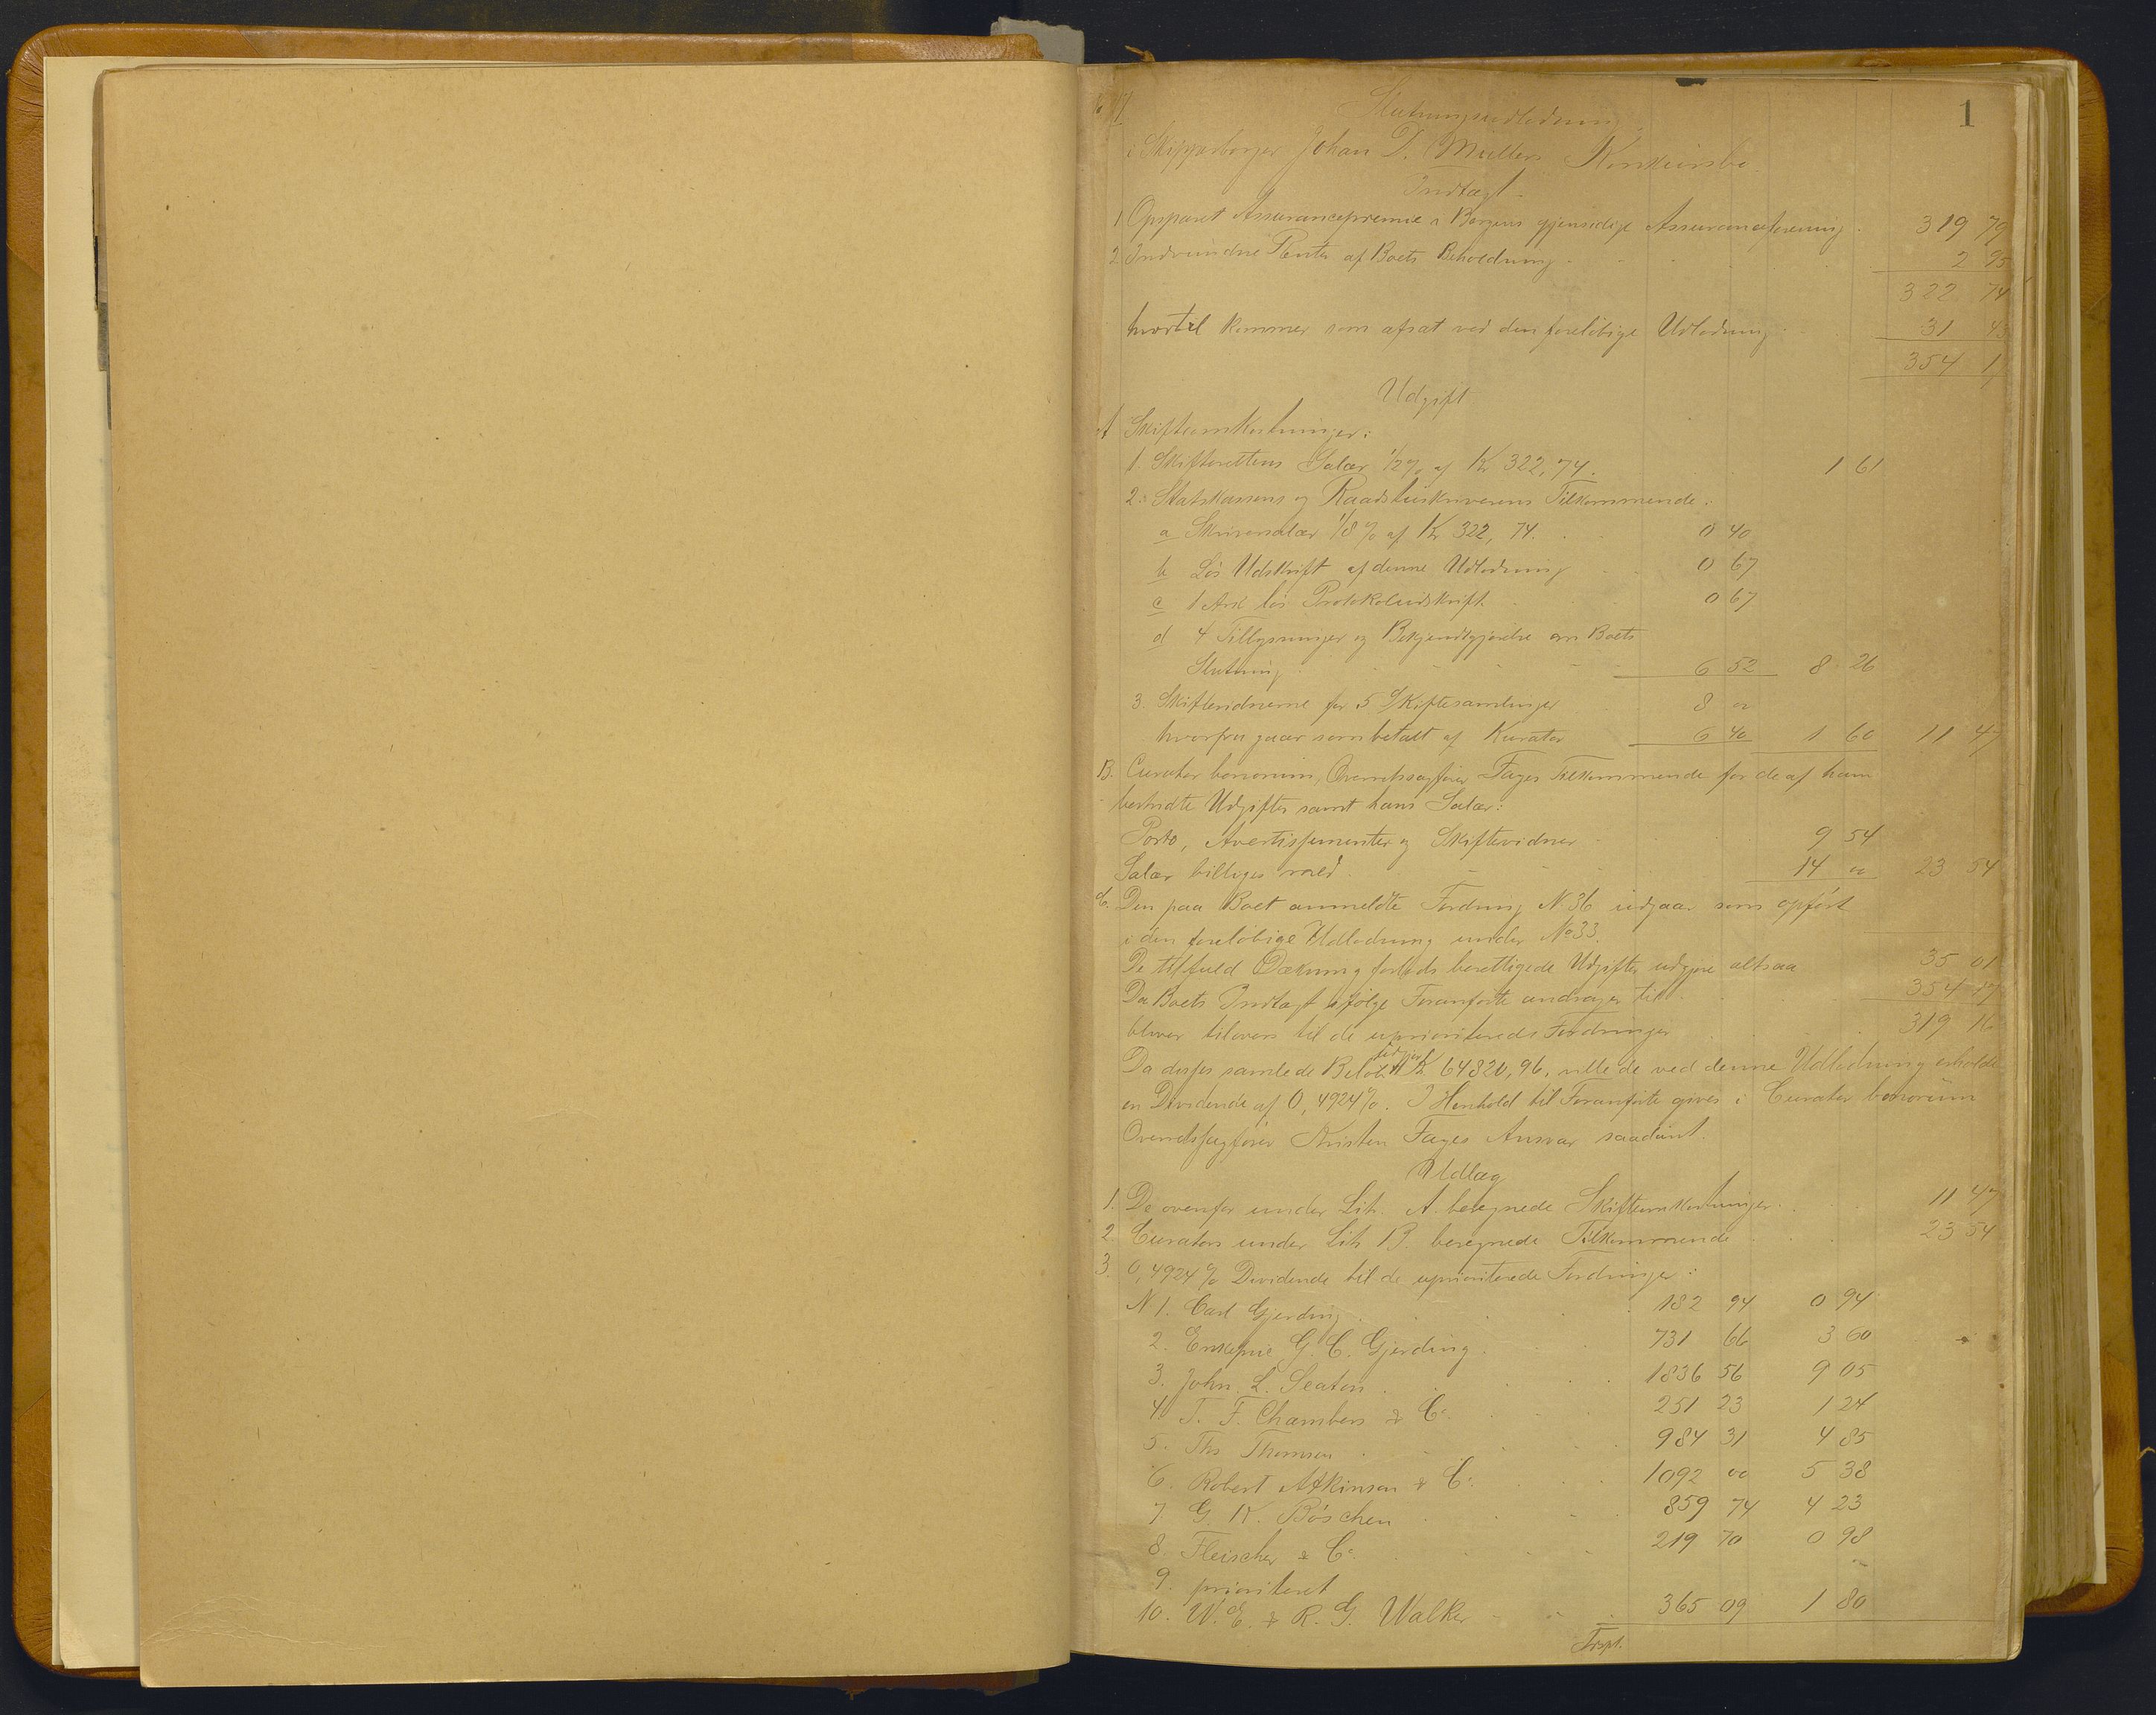 1
Slutningsudlodning
i Skipperborger Johan D. Müllers Konkursbo.
Indtægt.
1 Opsparet Assurancepremie i Bergens gjensidige Assuranceforening. 319 79
2. Indvundne Renter af Boets Beholdning 2 95
322 74
hvortil kommer som afsat ved den foreløbige Udlodning 31 43
354 17
Udgift
A Skifteomkostninger:
1. Skifterettens Salær 1/2 % af Kr 322,74. 1 61
2. Statskassens og Raadstueskriverens Tilkommende:
a Skriversalær 1/8 % af Kr 322, 74. 0 40
b Løs Udskrift af denne Udlodning 0 67
c 1 Ark løs Protokoludskrift 0 67
d 4 Tillysninger og Bekjendtgjørelse om Boets
Slutning 6 52 8 26
3. Skiftevidnerne for 5 Skiftesamlinger 8 00
hvorfra gaar som betalt af Kurator 6 40 1 60 11 47
B. Curator bonorum, Overretssagfører Fayes Tilkommende for de af ham
bestridte Udgifter samt hans Salær:
Porto, Avertissementer og Skiftevidner 9 54
Salær billiges med 14 00 23 54
C. Den paa Boet anmeldte Fordring N 36 udgaar som opført
i den foreløbige Udlodning under No 33.
De til fuld Dækning forlods berettigede Udgifter udgjøre altsaa 35 01
Da Boets Indtægt ifølge Foranførte andrager til 354 17
bliver tilovers til de uprioriterede Fordringer 319 16
Da disses samlede Beløb udgjør Kr 64820,96, ville de ved denne Udlodning erholde
en Dividende af 0,4924 %. I Henhold til Foranførte gives i Curator bonorum
Overretssagfører Kristen Fayes Ansvar saadant
Udlæg
1. De ovenfor under Litr. A. beregnede Skifteomkostninger 11 47
2. Curators under Litr B. beregnede Tilkommende 23 54
3. 0,4924 % Dividende til de uprioriterede Fordringer:
N 1. Carl Gjerding 182 94 0 94
2. Enkefrue G. C. Gjerding 731 66 3 60
3. John L. Seaton 1836 56 9 05
4. T. F. Chambers & Co. 251 23 1 24
5. Ths Thomsen 984 31 4 85
6. Robert Atkinson & Co. 1092 00 5 38
7. G. K. Böschen 859 74 4 23
8. Fleischer & Co. 219 70 0 98
9. prioriteret
10. W. E. & R. G. Walker 365 09 1 80
Trspt.